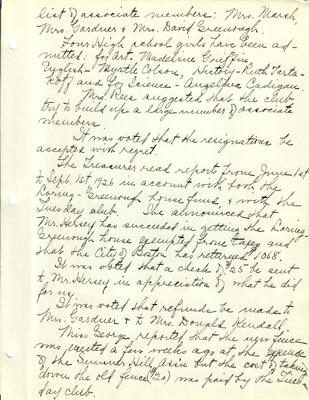 list of associate members: Mrs. Marsh,
Mrs. Gardner & Mrs. David Greenough.
Four High school girls have been ad-
mitted: for Art - Madeline Griffin,
English - Myrtle Colson, History - Ruth Tarta-
koff and for Science - Angelina Cadigan.
Mrs. Rees suggested that the club
try to build up a large number of associate
members.
It was voted that the resignations be
accepted with regret.
The Treasurer read reports from June 1st
to Sept. 1st 1926 in account with both the
Loring-Greenough house fund, & with the
Tuesday club. She announced that
Mr. Hersey has succeeded in getting the Loring-
Greenough house exempted from taxes and
that the City of Boston has returned $1068.
It was voted that a check of $25 be sent
to Mr. Hersey in appreciation of what he did
for us.
It was voted that refunds be made to
Mrs. Gardner & to Mrs. Douglas Kendall.
Miss George reported that the new fence
was erected a few weeks ago at the expense
of the Sumner Hill Ass'n but the cost of taking
down the old fence ($20) was paid by the Tues-
day club.